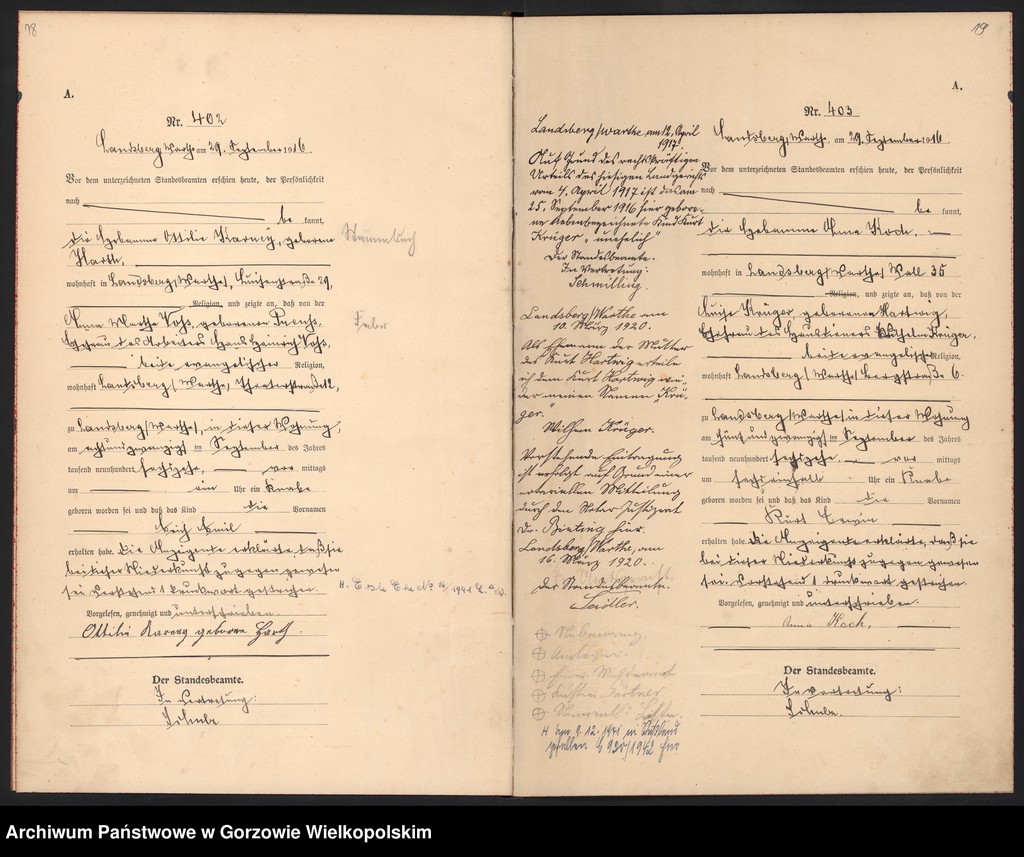 18
A.
Nr. 402
Landsberg Warthe am 29. September 1916
Vor dem unterzeichneten Standesbeamten erschien heute, der Persönlichkeit
nach
be kannt,
die Hebamme Ottilie Karney, geborene
Harth,
wohnhaft in Landsberg/Warthe, 29,
Religion, und zeigte an, daß von der
Anna Martha Voß, geborenen
Ehefrau des Arbeiters Hans Heinrich Voß,
beide evangelischer Religion,
wohnhaft Landsberg/Warthe, Theaterstraße 12,
zu Landsberg/Warthe, in dieser Wohnung,
am achtundzwanzigsten September des Jahres
tausend neunhundert sechzehn, vor mittags
um ein Uhr ein Knabe
geboren worden sei und daß das Kind die Vornamen
Erich Emil
erhalten habe. Die Anzeigende erklärte, daß sie
bei dieser Niederkunft zugegen gewesen
sei. Vorstehend 1 Druckwort gestrichen.
Vorgelesen, genehmigt und unterschrieben.
Ottilie Karney geborene Harth.
Der Standesbeamte.
In Vertretung:
Stammbuch
19
A.
Nr. 403
Landsberg/Warthe am 12. April
1917.
Auf Grund des rechtskräftigen
Urteils des hiesigen Landgerichts
vom 4. April 1917 ist das am
25. September 1916 hier gebore-
ne nebenbezeichnete Kind Kurt
Krüger „unehelich"
Der Standesbeamte.
In Vertretung:
Schmilling.
Landsberg/Warthe am
10. März 1920.
Als Ehemann der Mutter
des Kurt Hartwig erteile
ich dem Kurt Hartwig wie-
der meinen Namen „Krü-
ger."
Wilhelm Krüger.
Vorstehende Eintragung
ist erfolgt auf Grund einer
notariellen Mitteilung
durch den Notar Justizrat
Dr. hier.
Landsberg/Warthe, am
16. März 1920.
Der Standesbeamte.
Seidler.
Landsberg/Warthe, am 29. September 1916.
Vor dem unterzeichneten Standesbeamten erschien heute, der Persönlichkeit
nach
be kannt,
die Hebamme Anna Koch,
wohnhaft in Landsberg/Warthe, Wall 35
Religion, und zeigte an, daß von der
Luise Krüger, geborenen Hartwig,
Ehefrau des Hausdieners Wilhelm Krüger,
beide evangelischer Religion,
wohnhaft Landsberg/Warthe, Bergstraße 6.
zu Landsberg/Warthe, in dieser Wohnung
am fünfundzwanzigsten September des Jahres
tausend neunhundert sechzehn vor mittags
um Uhr ein Knabe
geboren worden sei und daß das Kind die Vornamen
Kurt Erwin
erhalten habe. Die Anzeigende erklärte, daß sie
bei dieser Niederkunft zugegen gewesen
sei. Vorstehend 1 Druckwort gestrichen.
Vorgelesen, genehmigt und unterschrieben.
Anna Koch,
Der Standesbeamte.
In Vertretung:
Archiwum Państwowe w Gorzowie Wielkopolskim